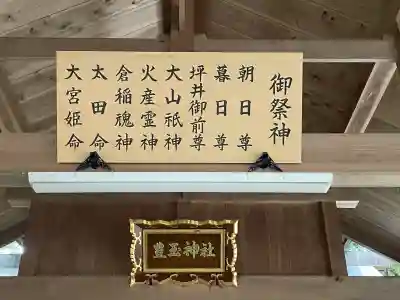 御祭神
朝日尊
暮日尊
坪井御前尊
大山祇神
火産霊神
倉稲魂神
太田命
大宮姫命
豊玉神社